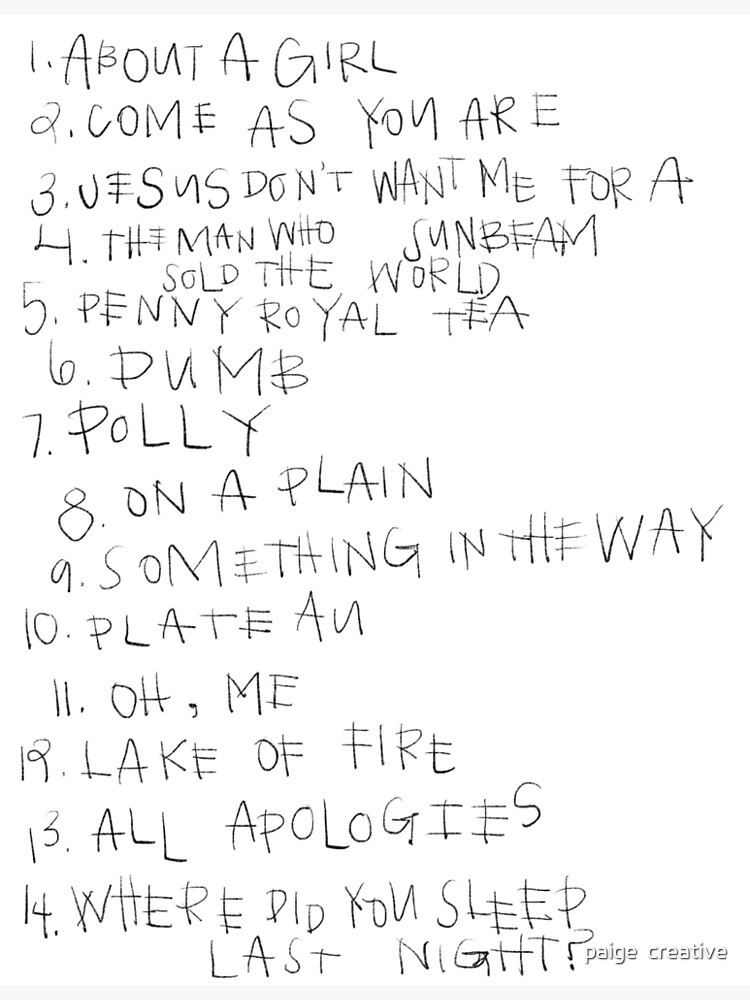 1. ABOUT A GIRL
2. COME AS YOU ARE
3. JESUS DON'T WANT ME FOR A
SUNBEAM
4. THE MAN WHO
SOLD THE WORLD
5. PENNY ROYAL TEA
6. DUMB
7. POLLY
8. ON A PLAIN
9. SOMETHING IN THE WAY
10. PLATEAU
11. OH, ME
12. LAKE OF FIRE
13. ALL APOLOGIES
14. WHERE DID YOU SLEEP
LAST NIGHT?
paige creative